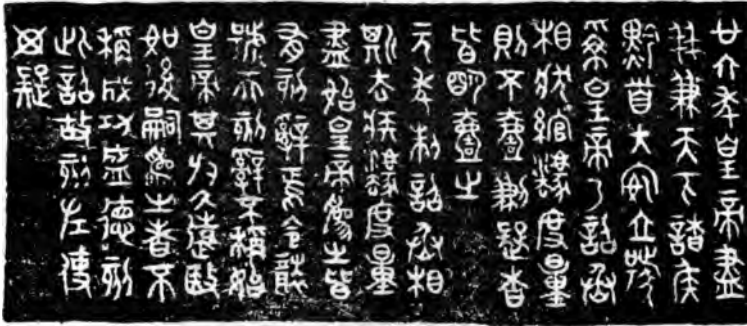 廿六年皇帝盡
并兼天下諸侯
黔首大安立號
為皇帝乃詔丞
相狀綰灋度量
則不壹歉疑者
皆明壹之
元年制詔丞相
斯去疾灋度量
盡始皇帝為之皆
有刻辭焉今襲
號而刻辭不稱始
皇帝其於久遠殹
如後嗣為之者不
稱成功盛德刻
此詔故刻左使
毋疑